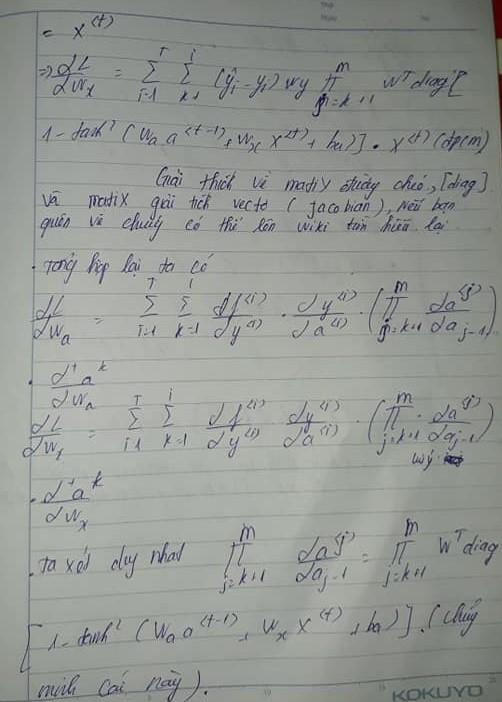 = x^<t>
=> dL/dW_x = Σ_{i=1}^{T} Σ_{k=1}^{i} (ŷ_i - y_i) w_y ∏_{j=k+1}^{m} W^T diag [
1 - tanh² (W_a a^<t-1> + W_x x^<t> + b_a)] . x^<t> (đpcm)
Giải thích về matix đường chéo, [diag]
và matix giải tích vectơ (jacobian), nếu bạn
quên về chúng có thể lên wiki tìm hiểu lại.
. Tổng hợp lại ta có
dL/dW_a = Σ_{i=1}^{T} Σ_{k=1}^{i} df^<i>/dy^<i> . dy^<i>/da^<i> . (∏_{j=k+1}^{m} da^<j>/da_{j-1})
. d^+a^k/dW_a
dL/dW_x = Σ_{i=1}^{T} Σ_{k=1}^{i} df^<i>/dy^<i> dy^<i>/da^<i> . (∏_{j=k+1}^{m} . da^<j>/da_{j-1})
. d^+a^k/dW_x
. ta xét duy nhất ∏_{j=k+1}^{m} da^<j>/da_{j-1} = ∏_{j=k+1}^{m} W^T diag
[1 - tanh² (W_a a^<t-1> + W_x x^<t> + b_a)]. (chứng
minh cái này).
KOKUYO